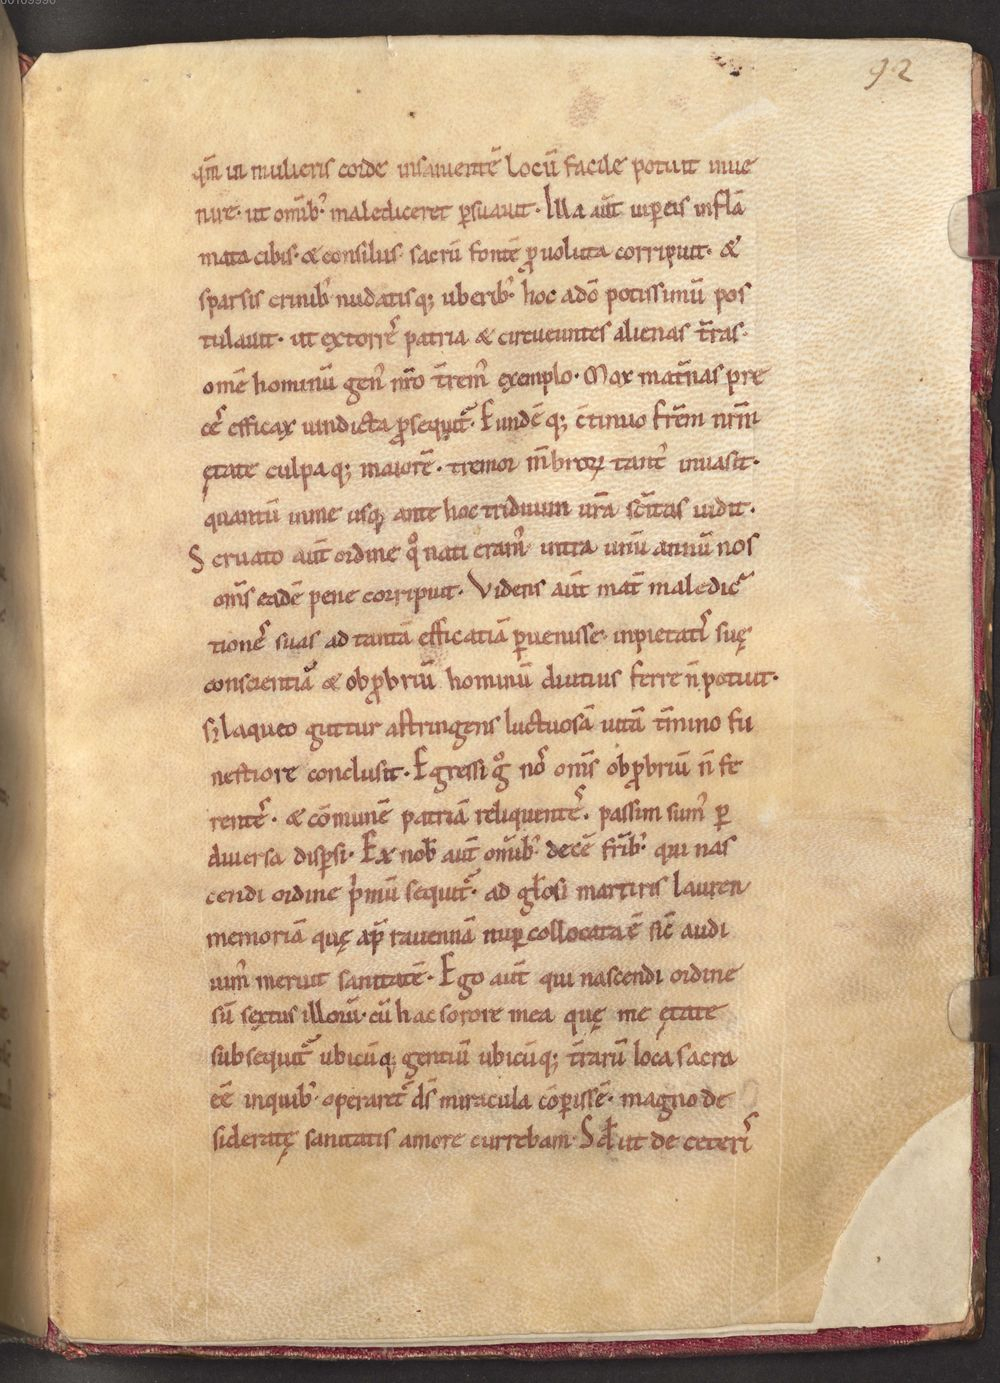 92
qm̄ in mulieris corde insanientē locū facile potuit inue
nire. ut omīb; malediceret ꝑsuauit. Illa aūt uiꝑeis inflā
mata cibis. & consiliis. sacrū fontē ꝓuoluta corripuit. &
sparsis crinib; nudatisq; uberib; hoc adō potissimū pos
tulauit. ut extorr̄ patria & circueuntes alienas t̄ras.
omē hominū gen⁹ nr̄o t̄rem⁹ exemplo. Mox mat̄nas pre
cē efficax uindicta ꝓsequit᷑. Eundē q; c̄tinuo fr̄em nr̄m
ętate culpaq; maiorē. tremor m̄broꝝ tant⁹ inuasit.
quantū nunc usq; ante hoc triduum ur̄a sc̄itas uidit.
Seruato aūt ordine qͦ nati eram⁹ intra unū annū nos
om̄s eadē pene corripuit. Videns aūt mat̄ maledic
tionē suas ad tantā efficatiā ꝑuenisse. inpietatis suę
conscientiā & obꝓbriū hominū diutius ferre n̄ potuit.
s; laqueo guttur astringens luctuosā uitā t̄mino fu
nestiore conclusit. Egressi gͦ nos̄ om̄s obꝓbriū n̄ fe
rentes. & cōmunē patriā reliquentes. passim sum⁹ ꝑ
diuersa disꝑsi. Ex nob̄ aūt omīb; decē fr̄ib; qui nas
cendi ordine p̄mū sequit᷑. ad gl̄osi martiris lauren
memoriā quę ap̄ rauennā nuꝑ collocata ē sic̄ audi
uim⁹ meruit sanitatē. Ego aūt qui nascendi ordine
sū sextus illorū. cū hac sorore mea quę me ętate
subsequit᷑ ubicūq; gentiū ubicūq; t̄rarū loca sacra
eē inquib; operaret᷑ d̄s miracula cōꝑissē. magno de
sideratę sanitatis amore currebam. Sꝫ ut de ceteris